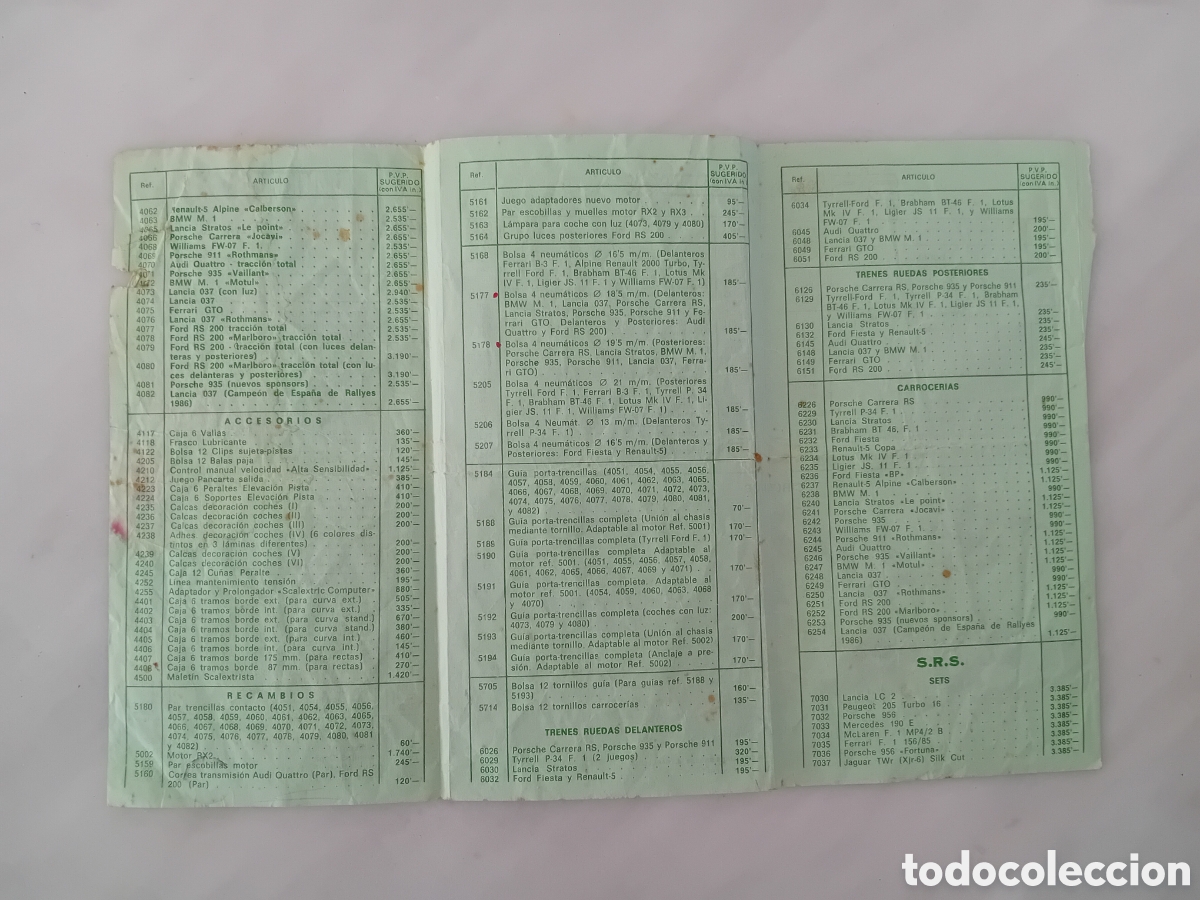 Ref. ARTICULO P.V.P. SUGERIDO (con IVA in.)
4062 Renault-5 Alpine «Calberson» 2.655'—
4063 BMW M. 1 2.535'—
4065 Lancia Stratos «Le point» 2.655'—
4066 Porsche Carrera «Jocavi» 2.655'—
4068 Williams FW-07 F. 1. 2.535'—
4069 Porsche 911 «Rothmans» 2.655'—
4070 Audi Quattro - tracción total 2.655'—
4071 Porsche 935 «Vaillant» 2.655'—
4072 BMW M. 1 «Motul» 2.655'—
4073 Lancia 037 (con luz) 2.940'—
4074 Lancia 037 2.535'—
4075 Ferrari GTO 2.535'—
4076 Lancia 037 «Rothmans» 2.655'—
4077 Ford RS 200 tracción total 2.535'—
4078 Ford RS 200 «Marlboro» tracción total 2.535'—
4079 Ford RS 200 - tracción total (con luces delan-
teras y posteriores) 3.190'—
4080 Ford RS 200 «Marlboro» tracción total (con lu-
ces delanteras y posteriores) 3.190'—
4081 Porsche 935 (nuevos sponsors) 2.535'—
4082 Lancia 037 (Campeón de España de Rallyes
1986) 2.655'—
ACCESORIOS
4117 Caja 6 Vallas 360'—
4118 Frasco Lubricante 135'—
4122 Bolsa 12 Clips sujeta-pistas 120'—
4205 Bolsa 12 Balas paja 145'—
4210 Control manual velocidad «Alta Sensibilidad» 1.125'—
4212 Juego Pancarta salida 385'—
4223 Caja 6 Peraltes Elevación Pista 410'—
4224 Caja 6 Soportes Elevación Pista 410'—
4235 Calcas decoración coches (I) 200'—
4236 Calcas decoración coches (II) 200'—
4237 Calcas decoración coches (III) 200'—
4238 Adhes decoración coches (IV) (6 colores dis-
tintos en 3 láminas diferentes) 200'—
4239 Calcas decoración coches (V) 200'—
4240 Calcas decoración coches (VI) 200'—
4245 Caja 12 Cuñas Peralte 360'—
4252 Línea mantenimiento tensión 195'—
4255 Adaptador y Prolongador «Scalextric Computer» 880'—
4401 Caja 6 tramos borde ext. (para curva ext.) 505'—
4402 Caja 6 tramos borde int. (para curva ext.) 335'—
4403 Caja 6 tramos borde ext. (para curva stand.) 670'—
4404 Caja 6 tramos borde int. (para curva stand.) 380'—
4405 Caja 6 tramos borde ext. (para curva int.) 460'—
4406 Caja 6 tramos borde int. (para curva int.) 145'—
4407 Caja 6 tramos borde 175 mm. (para rectas) 410'—
4408 Caja 6 tramos borde 87 mm. (para rectas) 270'—
4500 Maletín Scalextrista 1.420'—
RECAMBIOS
5180 Par trencillas contacto (4051, 4054, 4055, 4056,
4057, 4058, 4059, 4060, 4061, 4062, 4063, 4065,
4066, 4067, 4068, 4069, 4070, 4071, 4072, 4073,
4074, 4075, 4076, 4077, 4078, 4079, 4080, 4081
y 4082) 60'—
5002 Motor RX2 1.740'—
5159 Par escobillas motor 245'—
5160 Correa transmisión Audi Quattro (Par), Ford RS
200 (Par) 120'—
Ref. ARTICULO P.V.P. SUGERIDO (con IVA in.)
5161 Juego adaptadores nuevo motor 95'—
5162 Par escobillas y muelles motor RX2 y RX3 245'—
5163 Lámpara para coche con luz (4073, 4079 y 4080) 170'—
5164 Grupo luces posteriores Ford RS 200 405'—
5168 Bolsa 4 neumáticos Ø 16'5 m/m. (Delanteros
Ferrari B-3 F. 1, Alpine Renault 2000 Turbo, Ty-
rrell Ford F. 1, Brabham BT-46 F. 1, Lotus Mk
IV F. 1, Ligier JS. 11 F. 1 y Williams FW-07 F. 1) 185'—
5177 Bolsa 4 neumáticos Ø 18'5 m/m. (Delanteros:
BMW M. 1, Lancia 037, Porsche Carrera RS,
Lancia Stratos, Porsche 935, Porsche 911 y Fe-
rrari GTO. Delanteros y Posteriores: Audi
Quattro y Ford RS 200) 185'—
5178 Bolsa 4 neumáticos Ø 19'5 m/m. (Posteriores:
Porsche Carrera RS, Lancia Stratos, BMW M. 1,
Porsche 935, Porsche 911, Lancia 037, Ferra-
ri GTO) 185'—
5205 Bolsa 4 neumáticos Ø 21 m/m. (Posteriores
Tyrrell Ford F. 1, Ferrari B-3 F. 1, Tyrrell P. 34
F. 1, Brabham BT-46 F. 1, Lotus Mk IV F. 1, Li-
gier JS. 11 F. 1, Williams FW-07 F. 1) 185'—
5206 Bolsa 4 Neumát. Ø 13 m/m. (Delanteros Ty-
rrell P-34 F. 1) 185'—
5207 Bolsa 4 neumáticos Ø 16'5 m/m. (Delanteros y
Posteriores: Ford Fiesta y Renault-5) 185'—
5184 Guía porta-trencillas (4051, 4054, 4055, 4056,
4057, 4058, 4059, 4060, 4061, 4062, 4063, 4065,
4066, 4067, 4068, 4069, 4070, 4071, 4072, 4073,
4074, 4075, 4076, 4077, 4078, 4079, 4080, 4081,
y 4082) 70'—
5188 Guía porta-trencillas completa (Unión al chasis
mediante tornillo. Adaptable al motor Ref. 5001) 170'—
5189 Guía porta-trencillas completa (Tyrrell Ford F. 1) 170'—
5190 Guía porta-trencillas completa Adaptable al
motor ref. 5001. (4051, 4055, 4056, 4057, 4058,
4061, 4062, 4065, 4066, 4067, 4069 y 4071) 170'—
5191 Guía porta-trencillas completa. Adaptable al
motor ref. 5001. (4054, 4059, 4060, 4063, 4068
y 4070) 170'—
5192 Guía porta-trencillas completa (coches con luz:
4073, 4079 y 4080) 200'—
5193 Guía porta-trencillas completa (Unión al chasis
mediante tornillo. Adaptable al motor Ref. 5002) 170'—
5194 Guía porta-trencillas completa (Anclaje a pre-
sión. Adaptable al motor Ref. 5002) 170'—
5705 Bolsa 12 tornillos guía (Para guías ref. 5188 y
5193) 160'—
5714 Bolsa 12 tornillos carrocerías 135'—
TRENES RUEDAS DELANTEROS
6026 Porsche Carrera RS, Porsche 935 y Porsche 911 195'—
6029 Tyrrell P-34 F. 1 (2 juegos) 320'—
6030 Lancia Stratos 195'—
6032 Ford Fiesta y Renault-5 195'—
Ref. ARTICULO P.V.P. SUGERIDO (con IVA in.)
6034 Tyrrell-Ford F. 1, Brabham BT-46 F. 1, Lotus
Mk IV F. 1, Ligier JS 11 F. 1, y Williams
FW-07 F. 1 195'—
6045 Audi Quattro 200'—
6048 Lancia 037 y BMW M. 1 195'—
6049 Ferrari GTO 195'—
6051 Ford RS 200 200'—
TRENES RUEDAS POSTERIORES
6126 Porsche Carrera RS, Porsche 935 y Porsche 911 235'—
6129 Tyrrell-Ford F. 1, Tyrrell P-34 F. 1, Brabham
BT-46 F. 1, Lotus Mk IV F. 1, Ligier JS 11 F. 1,
y Williams FW-07 F. 1 235'—
6130 Lancia Stratos 235'—
6132 Ford Fiesta y Renault-5 235'—
6145 Audi Quattro 245'—
6148 Lancia 037 y BMW M. 1 235'—
6149 Ferrari GTO 235'—
6151 Ford RS 200 245'—
CARROCERIAS
6226 Porsche Carrera RS 990'—
6229 Tyrrell P-34 F. 1 990'—
6230 Lancia Stratos 990'—
6231 Brabham BT 46, F. 1 990'—
6232 Ford Fiesta 990'—
6233 Renault-5 Copa 990'—
6234 Lotus Mk IV F. 1 990'—
6235 Ligier JS. 11 F. 1 990'—
6236 Ford Fiesta «BP» 1.125'—
6237 Renault-5 Alpine «Calberson» 1.125'—
6238 BMW M. 1 990'—
6240 Lancia Stratos «Le point» 1.125'—
6241 Porsche Carrera «Jocavi» 1.125'—
6242 Porsche 935 990'—
6243 Williams FW-07 F. 1 990'—
6244 Porsche 911 «Rothmans» 1.125'—
6245 Audi Quattro 1.125'—
6246 Porsche 935 «Vaillant» 1.125'—
6247 BMW M. 1 «Motul» 1.125'—
6248 Lancia 037 990'—
6249 Ferrari GTO 990'—
6250 Lancia 037 «Rothmans» 1.125'—
6251 Ford RS 200 1.125'—
6252 Ford RS 200 «Marlboro» 1.125'—
6253 Porsche 935 (nuevos sponsors) 990'—
6254 Lancia 037 (Campeón de España de Rallyes
1986) 1.125'—
S.R.S.
SETS
7030 Lancia LC 2 3.385'—
7031 Peugeot 205 Turbo 16 3.385'—
7032 Porsche 956 3.385'—
7033 Mercedes 190 E 3.385'—
7034 McLaren F. 1 MP4/2 B 3.385'—
7035 Ferrari F. 1 156/85 3.385'—
7036 Porsche 956 «Fortuna» 3.385'—
7037 Jaguar TWr (Xjr-6) Silk Cut 3.385'—
todocoleccion